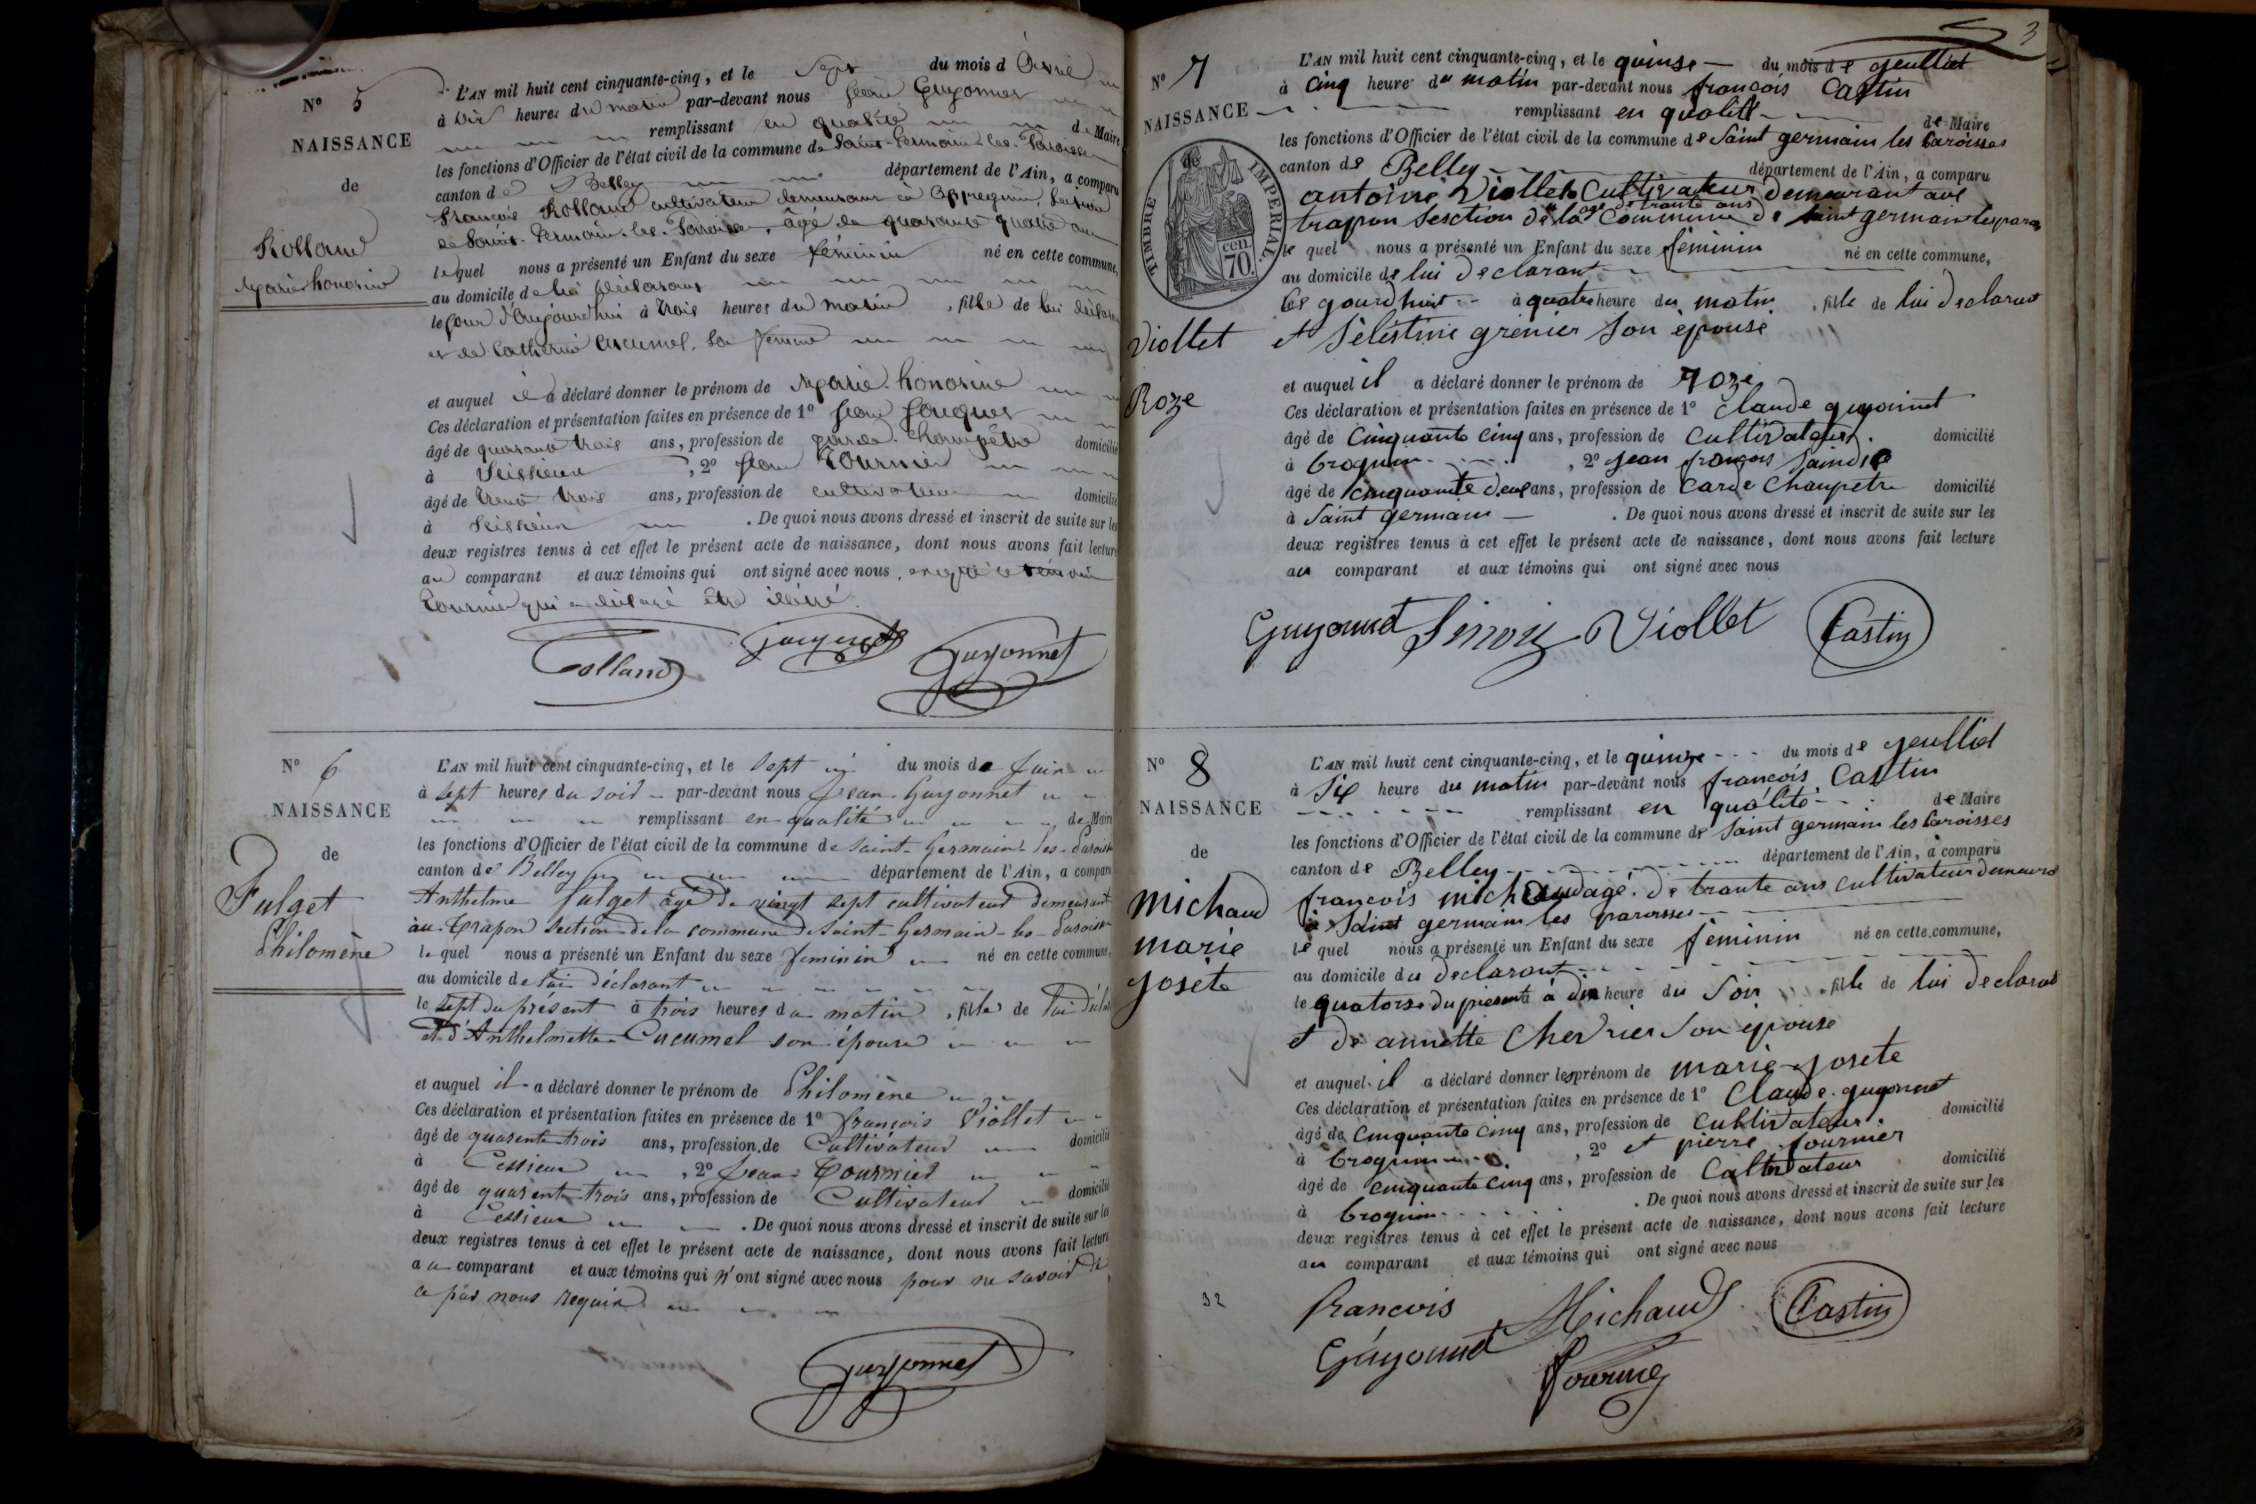 N° 5
NAISSANCE
de
Rolland
Marie honorine
L'AN mil huit cent cinquante-cinq, et le sept du mois d'Avril
à dix heures du matin par-devant nous Jean Guyonnet
remplissant en qualité de Maire
les fonctions d'Officier de l'état civil de la commune de Saint-Germain-les-Paroisses
canton de Belley département de l'Ain, a comparu
François Rolland cultivateur demeurant à Appregnin, Section
de Saint-Germain-les-Paroisses, âgé de quarante quatre ans
lequel nous a présenté un Enfant du sexe féminin né en cette commune,
au domicile de lui déclarant
le jour d'aujourd'hui à trois heures du matin, fille de lui déclarant
et de Catherine Cucumel, sa femme
et auquel il a déclaré donner le prénom de Marie-honorine
Ces déclaration et présentation faites en présence de 1° Jean
âgé de quarante trois ans, profession de garde-Champêtre domicilié
à Seissieux, 2° Jean Tournier
âgé de trente trois ans, profession de cultivateur domicilié
à Seissieux . De quoi nous avons dressé et inscrit de suite sur les
deux registres tenus à cet effet le présent acte de naissance, dont nous avons fait lecture
au comparant et aux témoins qui ont signé avec nous, excepté le témoin
Tournier qui a déclaré être illétré.
Rolland Guyonnet
N° 6
NAISSANCE
de
Fulget
Philomène
L'AN mil huit cent cinquante-cinq, et le sept du mois de Juin
à sept heures du soir par-devant nous Jean Guyonnet
remplissant en qualité de Maire
les fonctions d'Officier de l'état civil de la commune de Saint-Germain-les-Paroisses
canton de Belley département de l'Ain, a comparu
Anthelme fulget âgé de vingt sept cultivateur demeurant
au Trapon Section de la commune de Saint-Germain-les-Paroisses
lequel nous a présenté un Enfant du sexe feminin né en cette commune,
au domicile de lui déclarant
le sept du présent à trois heures du matin, fille de lui décla
et d'Anthelmette Cucumel son épouse
et auquel il a déclaré donner le prénom de Philomène
Ces déclaration et présentation faites en présence de 1° françois Viollet
âgé de quarente-trois ans, profession de Cultivateur domicilié
à Cessieux, 2° Jean Tournier
âgé de quarente-trois ans, profession de Cultivateur domicilié
à Cessieux . De quoi nous avons dressé et inscrit de suite sur les
deux registres tenus à cet effet le présent acte de naissance, dont nous avons fait lecture
au comparant et aux témoins qui n'ont signé avec nous pour ne savoir de
ce par nous requis
Guyonnet
3
N° 7
NAISSANCE
de
TIMBRE IMPERIAL
70 cen.
Viollet
Roze
L'AN mil huit cent cinquante-cinq, et le quinse du mois de jeulliet
à cinq heure du matin par-devant nous françois Castin
remplissant en qualité de Maire
les fonctions d'Officier de l'état civil de la commune de Saint germain les Paroisses
canton de Belley département de l'Ain, a comparu
antoine Viollet Cultivateur Demeurant aux
age de trante ans
trapon Sesction de la Commune de Saint germain les paro
le quel nous a présenté un Enfant du sexe féminin né en cette commune,
au domicile de lui Declarant
ce gourdhuit à quatre heure du matin, fille de lui Declarant
et Sélestine grénier Son épouse
et auquel il a déclaré donner le prénom de Roze
Ces déclaration et présentation faites en présence de 1° Claude guyonnet
âgé de Cinquante Cinq ans, profession de Cultivateur. domicilié
à brognin, 2° Jean françois
âgé de Cinquante deux ans, profession de Carde Chanpetre domicilié
à Saint germain . De quoi nous avons dressé et inscrit de suite sur les
deux registres tenus à cet effet le présent acte de naissance, dont nous avons fait lecture
au comparant et aux témoins qui ont signé avec nous
Guyonnet Viollet Castin
N° 8
NAISSANCE
de
Michaud
marie
josete
L'AN mil huit cent cinquante-cinq, et le quinze du mois de jeulliet
à Six heure du matin par-devant nous françois Castin
remplissant en qualité de Maire
les fonctions d'Officier de l'état civil de la commune de Saint germain les Paroisses
canton de Belley département de l'Ain, a comparu
françois michaud agé de trante ans cultivateur demeurant
à Saint germain les paroisses
le quel nous a présenté un Enfant du sexe féminin né en cette commune,
au domicile du declarant
le quatorse du présent à dix heure du Soir, fille de lui Declarant
et de annette Chevrier Son épouse
et auquel il a déclaré donner les prénom de marie-josete
Ces déclaration et présentation faites en présence de 1° Claude guyonnet
âgé de Cinquante Cinq ans, profession de Cultivateur domicilié
à brognin, 2° et pierre fournier
âgé de Cinquante Cinq ans, profession de Cultivateur domicilié
à brognin . De quoi nous avons dressé et inscrit de suite sur les
deux registres tenus à cet effet le présent acte de naissance, dont nous avons fait lecture
au comparant et aux témoins qui ont signé avec nous
32
francois Michaud Castin
Guyonnet